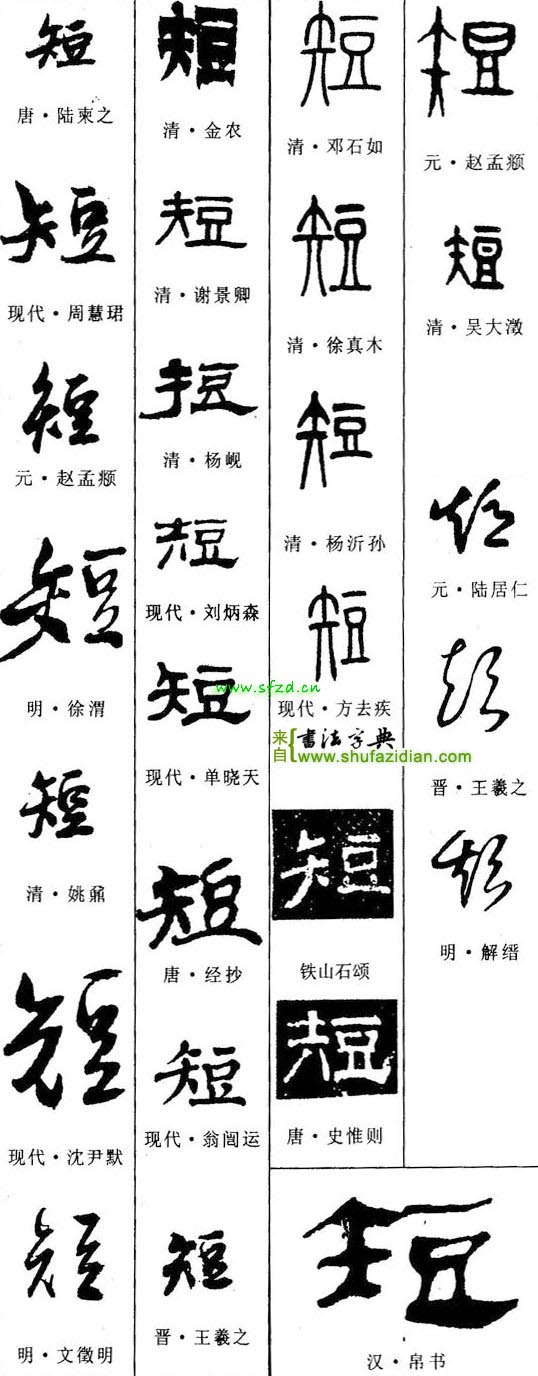 短
唐·陆柬之
短
现代·周慧珺
短
元·赵孟頫
短
明·徐渭
短
清·姚鼐
短
现代·沈尹默
短
明·文徵明
短
清·金农
短
清·谢景卿
短
清·杨岘
短
现代·刘炳森
短
现代·单晓天
短
唐·经抄
短
现代·翁闿运
短
晋·王羲之
短
清·邓石如
短
清·徐真木
短
清·杨沂孙
短
现代·方去疾
短
铁山石颂
短
唐·史惟则
短
元·赵孟頫
短
清·吴大澂
短
元·陆居仁
短
晋·王羲之
短
明·解缙
短
汉·帛书
www.sfzd.cn
来自{书法字典
www.shufazidian.com